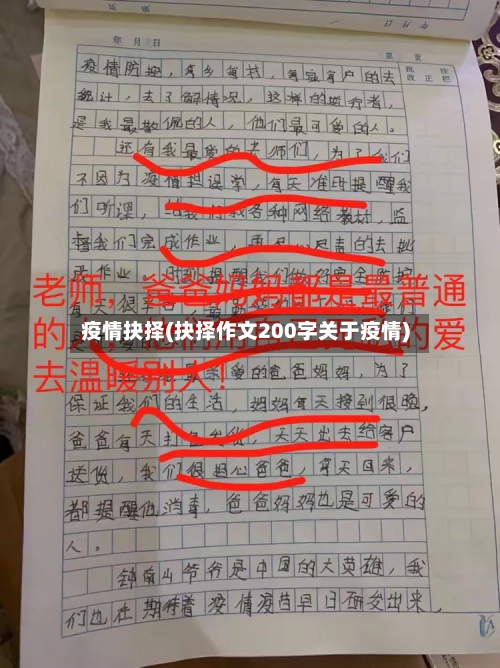 年 月 日
第 页
批 注
改 正 栏
疫情防控，每乡每村，每家每户的去
统计，去了解情况，这样的医疗者，
是我最敬佩的人，他们最可爱的人。
还有我最爱的老师们，为了我们
不因为疫情担误学，每天准时提醒我
们听课，给我们找各种网络教材，监
督我们完成作业，
的去批
改作业，时刻提醒我们做好安全防护
老师，爸爸妈妈都是最普通
的
的爱
疫情抉择(抉择作文200字关于疫情)
去温暖别人！
爱的爸爸妈妈，为了
保证我们的生活，妈妈每天接到很晚，
爸爸每天打包发货，天天出去给客户
送货，我们很担心爸爸，每天回来，
都提醒他消毒，爸爸妈妈也是可爱的
人。
钟南山爷爷是中国的大英雄，我
们也在期待着疫情疫苗早日研发出来，